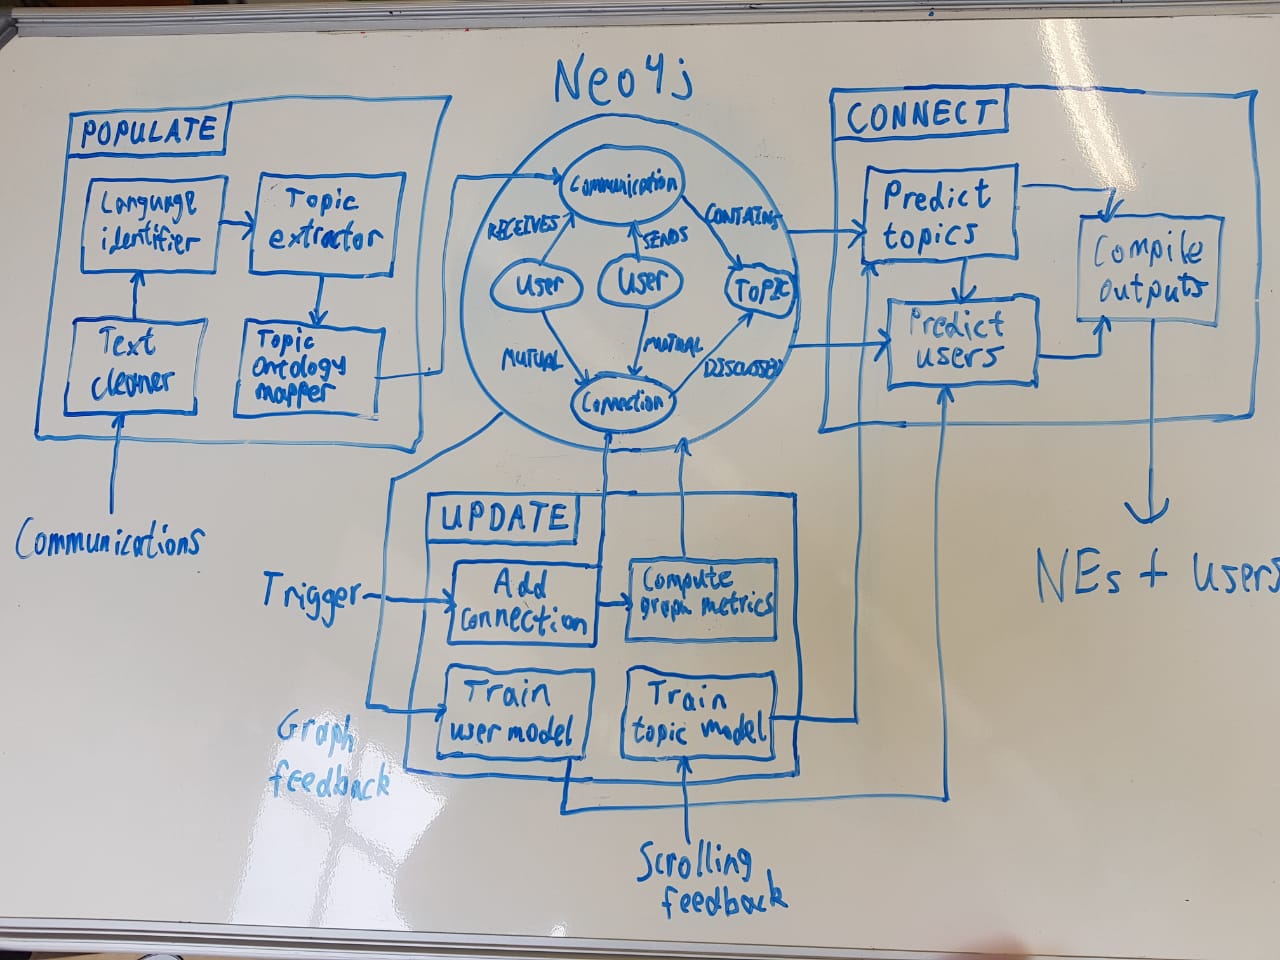 Neo4j
POPULATE
Language
identifier
Topic
extractor
Text
cleaner
Topic
ontology
mapper
Communications
Communication
RECEIVES
SENDS
CONTAINS
User
User
TOPIC
MUTUAL
MUTUAL
DISCUSSED
Connection
CONNECT
Predict
topics
Predict
users
Compile
outputs
NEs + users
UPDATE
Trigger
Add
connection
Compute
graph metrics
Train
user model
Train
topic model
Graph
feedback
Scrolling
feedback